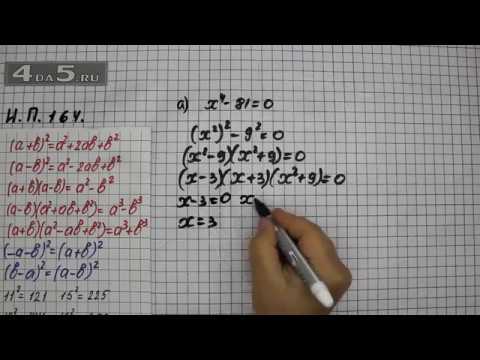 4DA5.RU
Н.П. 164.
(a+b)²=a²+2ab+b²
(a-b)²=a²-2ab+b²
(a+b)(a-b)=a²-b²
(a-b)(a²+ab+b²)=a³-b³
(a+b)(a²-ab+b²)=a³+b³
(-a-b)²=(a+b)²
(b-a)²=(a-b)²
11²=121 15²=225
а) x⁴-81=0
(x²)²-9²=0
(x²-9)(x²+9)=0
(x-3)(x+3)(x²+9)=0
x-3=0 x
x=3